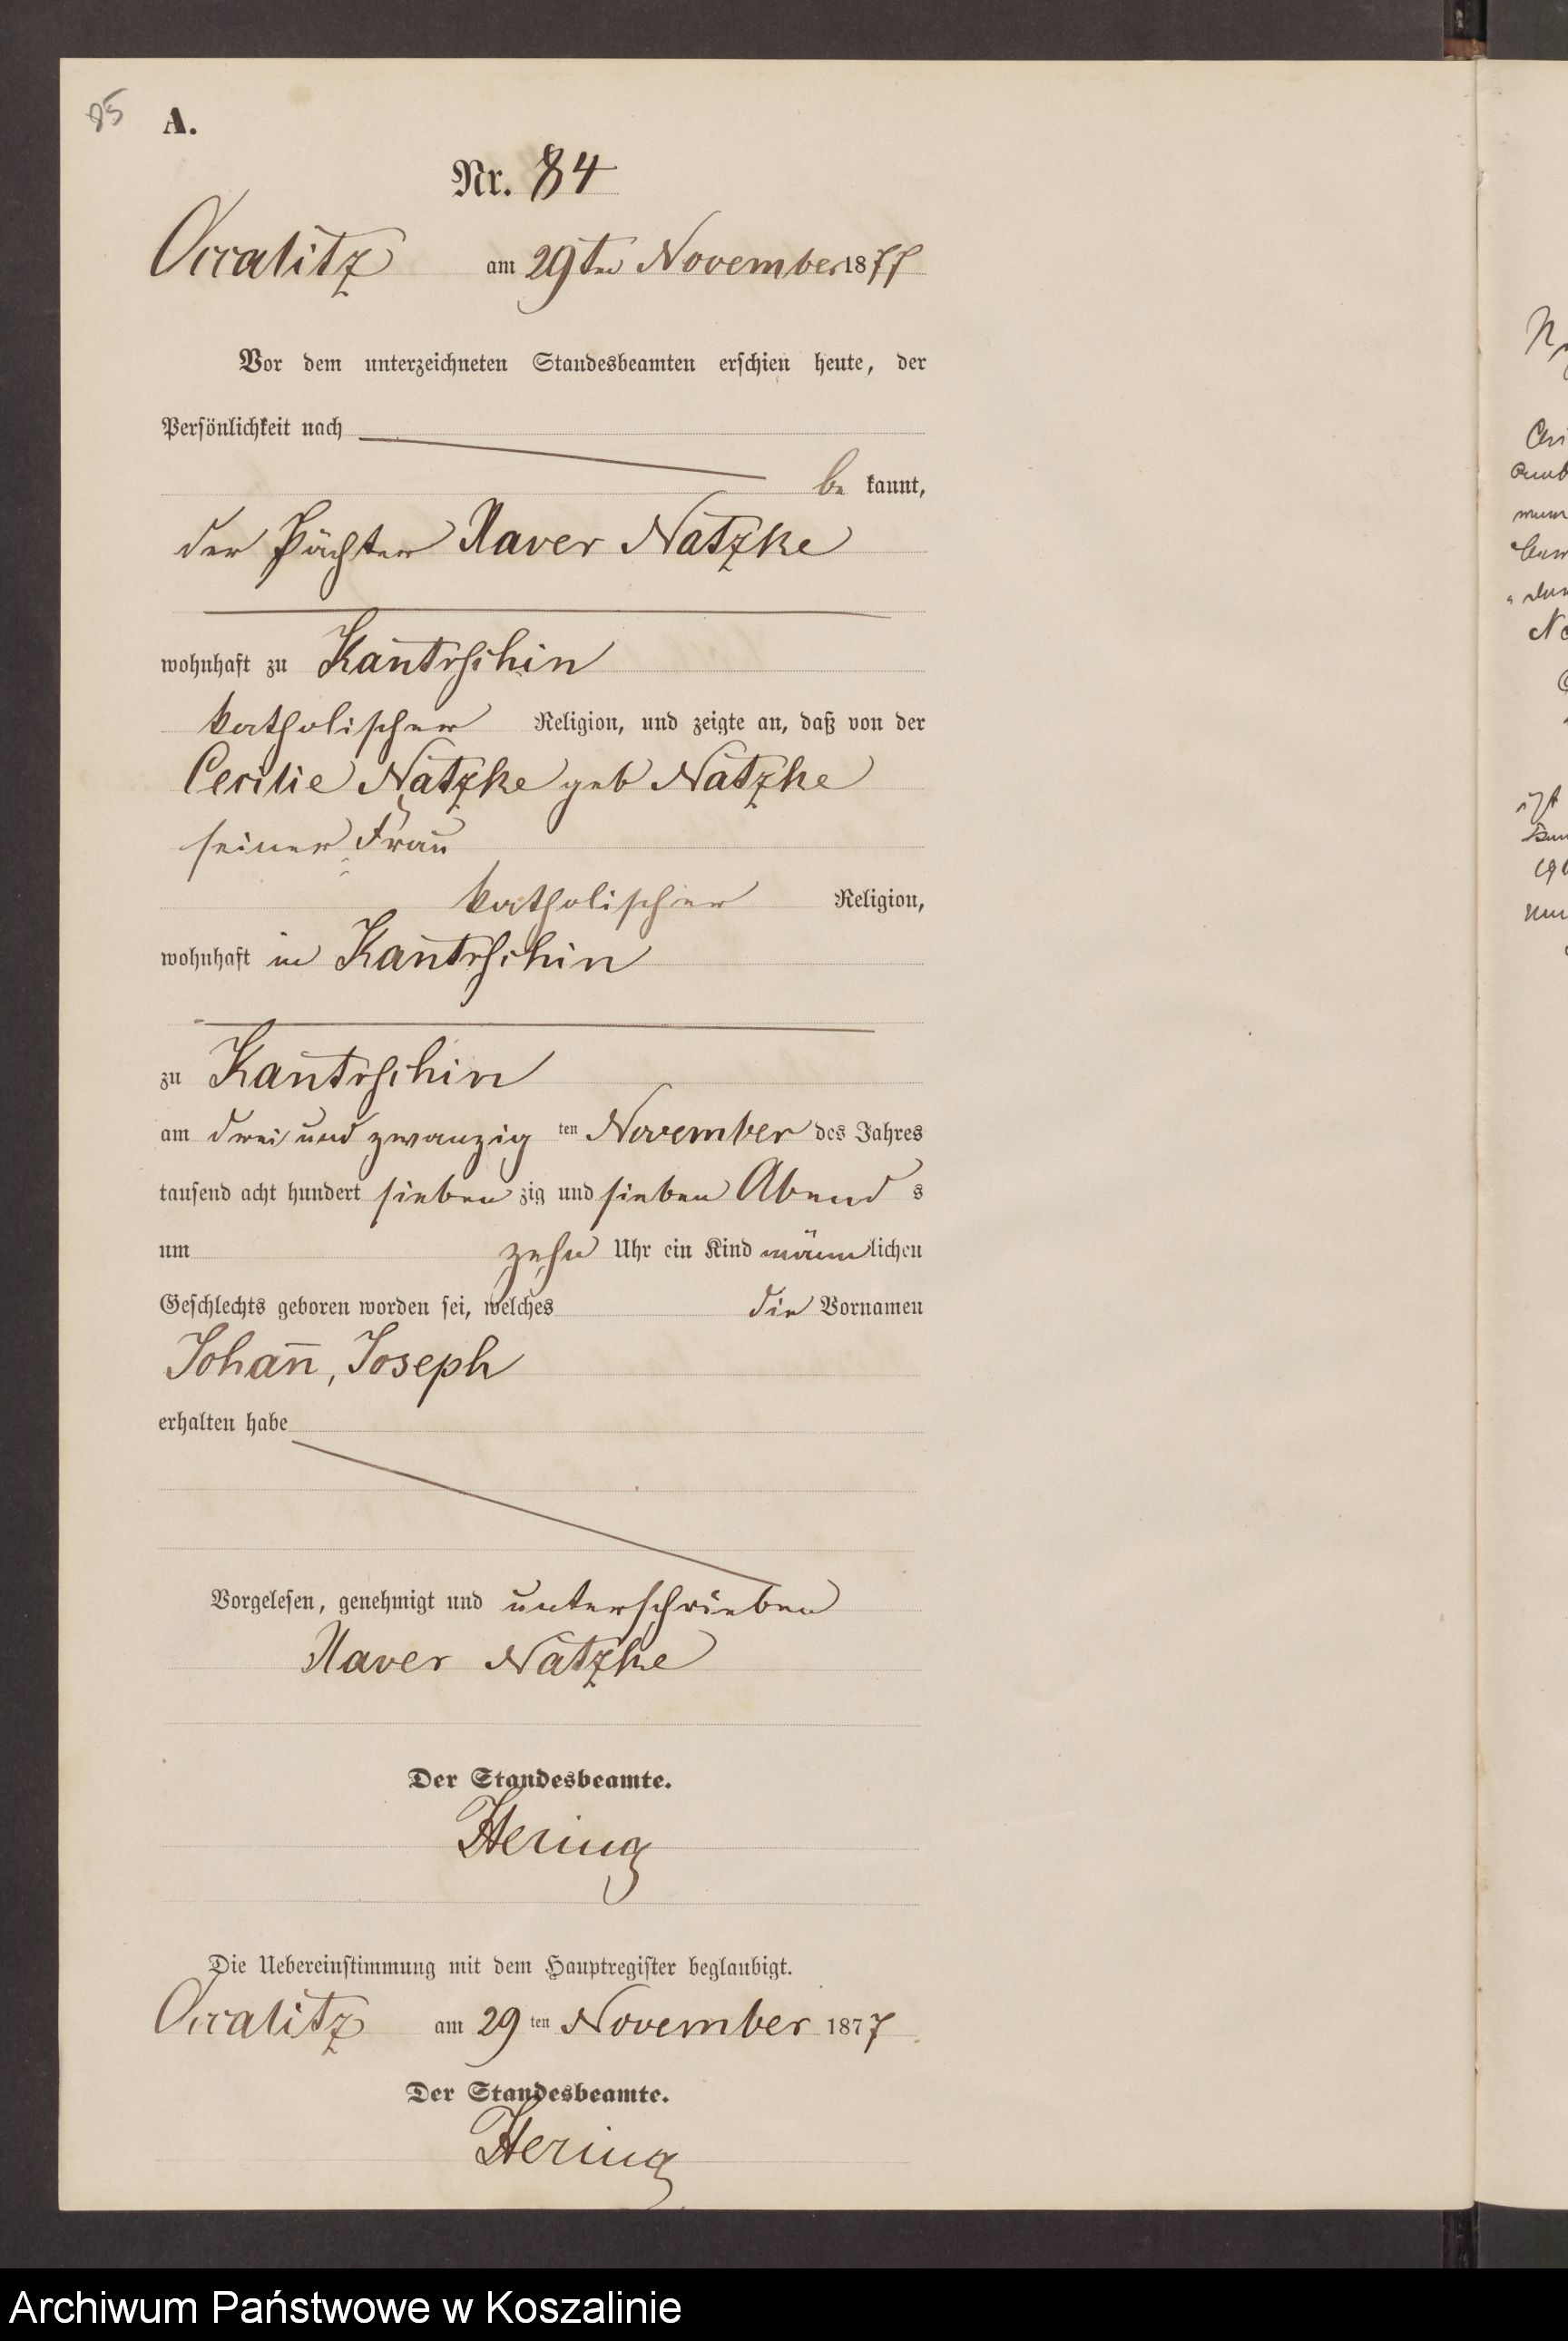 85 A.
Nr. 84
Occalitz am 29ten November 1877
Vor dem unterzeichneten Standesbeamten erschien heute, der
Persönlichkeit nach
be kannt,
der Pächter Xaver Natzke
wohnhaft zu Kantrschin
katholischer Religion, und zeigte an, daß von der
Cecilie Natzke geb Natzke
seiner Frau
katholischer Religion,
wohnhaft in Kantrschin
zu Kantrschin
am drei und zwanzig ten November des Jahres
tausend acht hundert sieben zig und sieben Abend s
um zehn Uhr ein Kind männ lichen
Geschlechts geboren worden sei, welches die Vornamen
Johan̄, Joseph
erhalten habe
Vorgelesen, genehmigt und unterschrieben
Xaver Natzke
Der Standesbeamte.
Hering
Die Uebereinstimmung mit dem Hauptregister beglaubigt.
Occalitz am 29 ten November 1877
Der Standesbeamte.
Hering
Archiwum Państwowe w Koszalinie